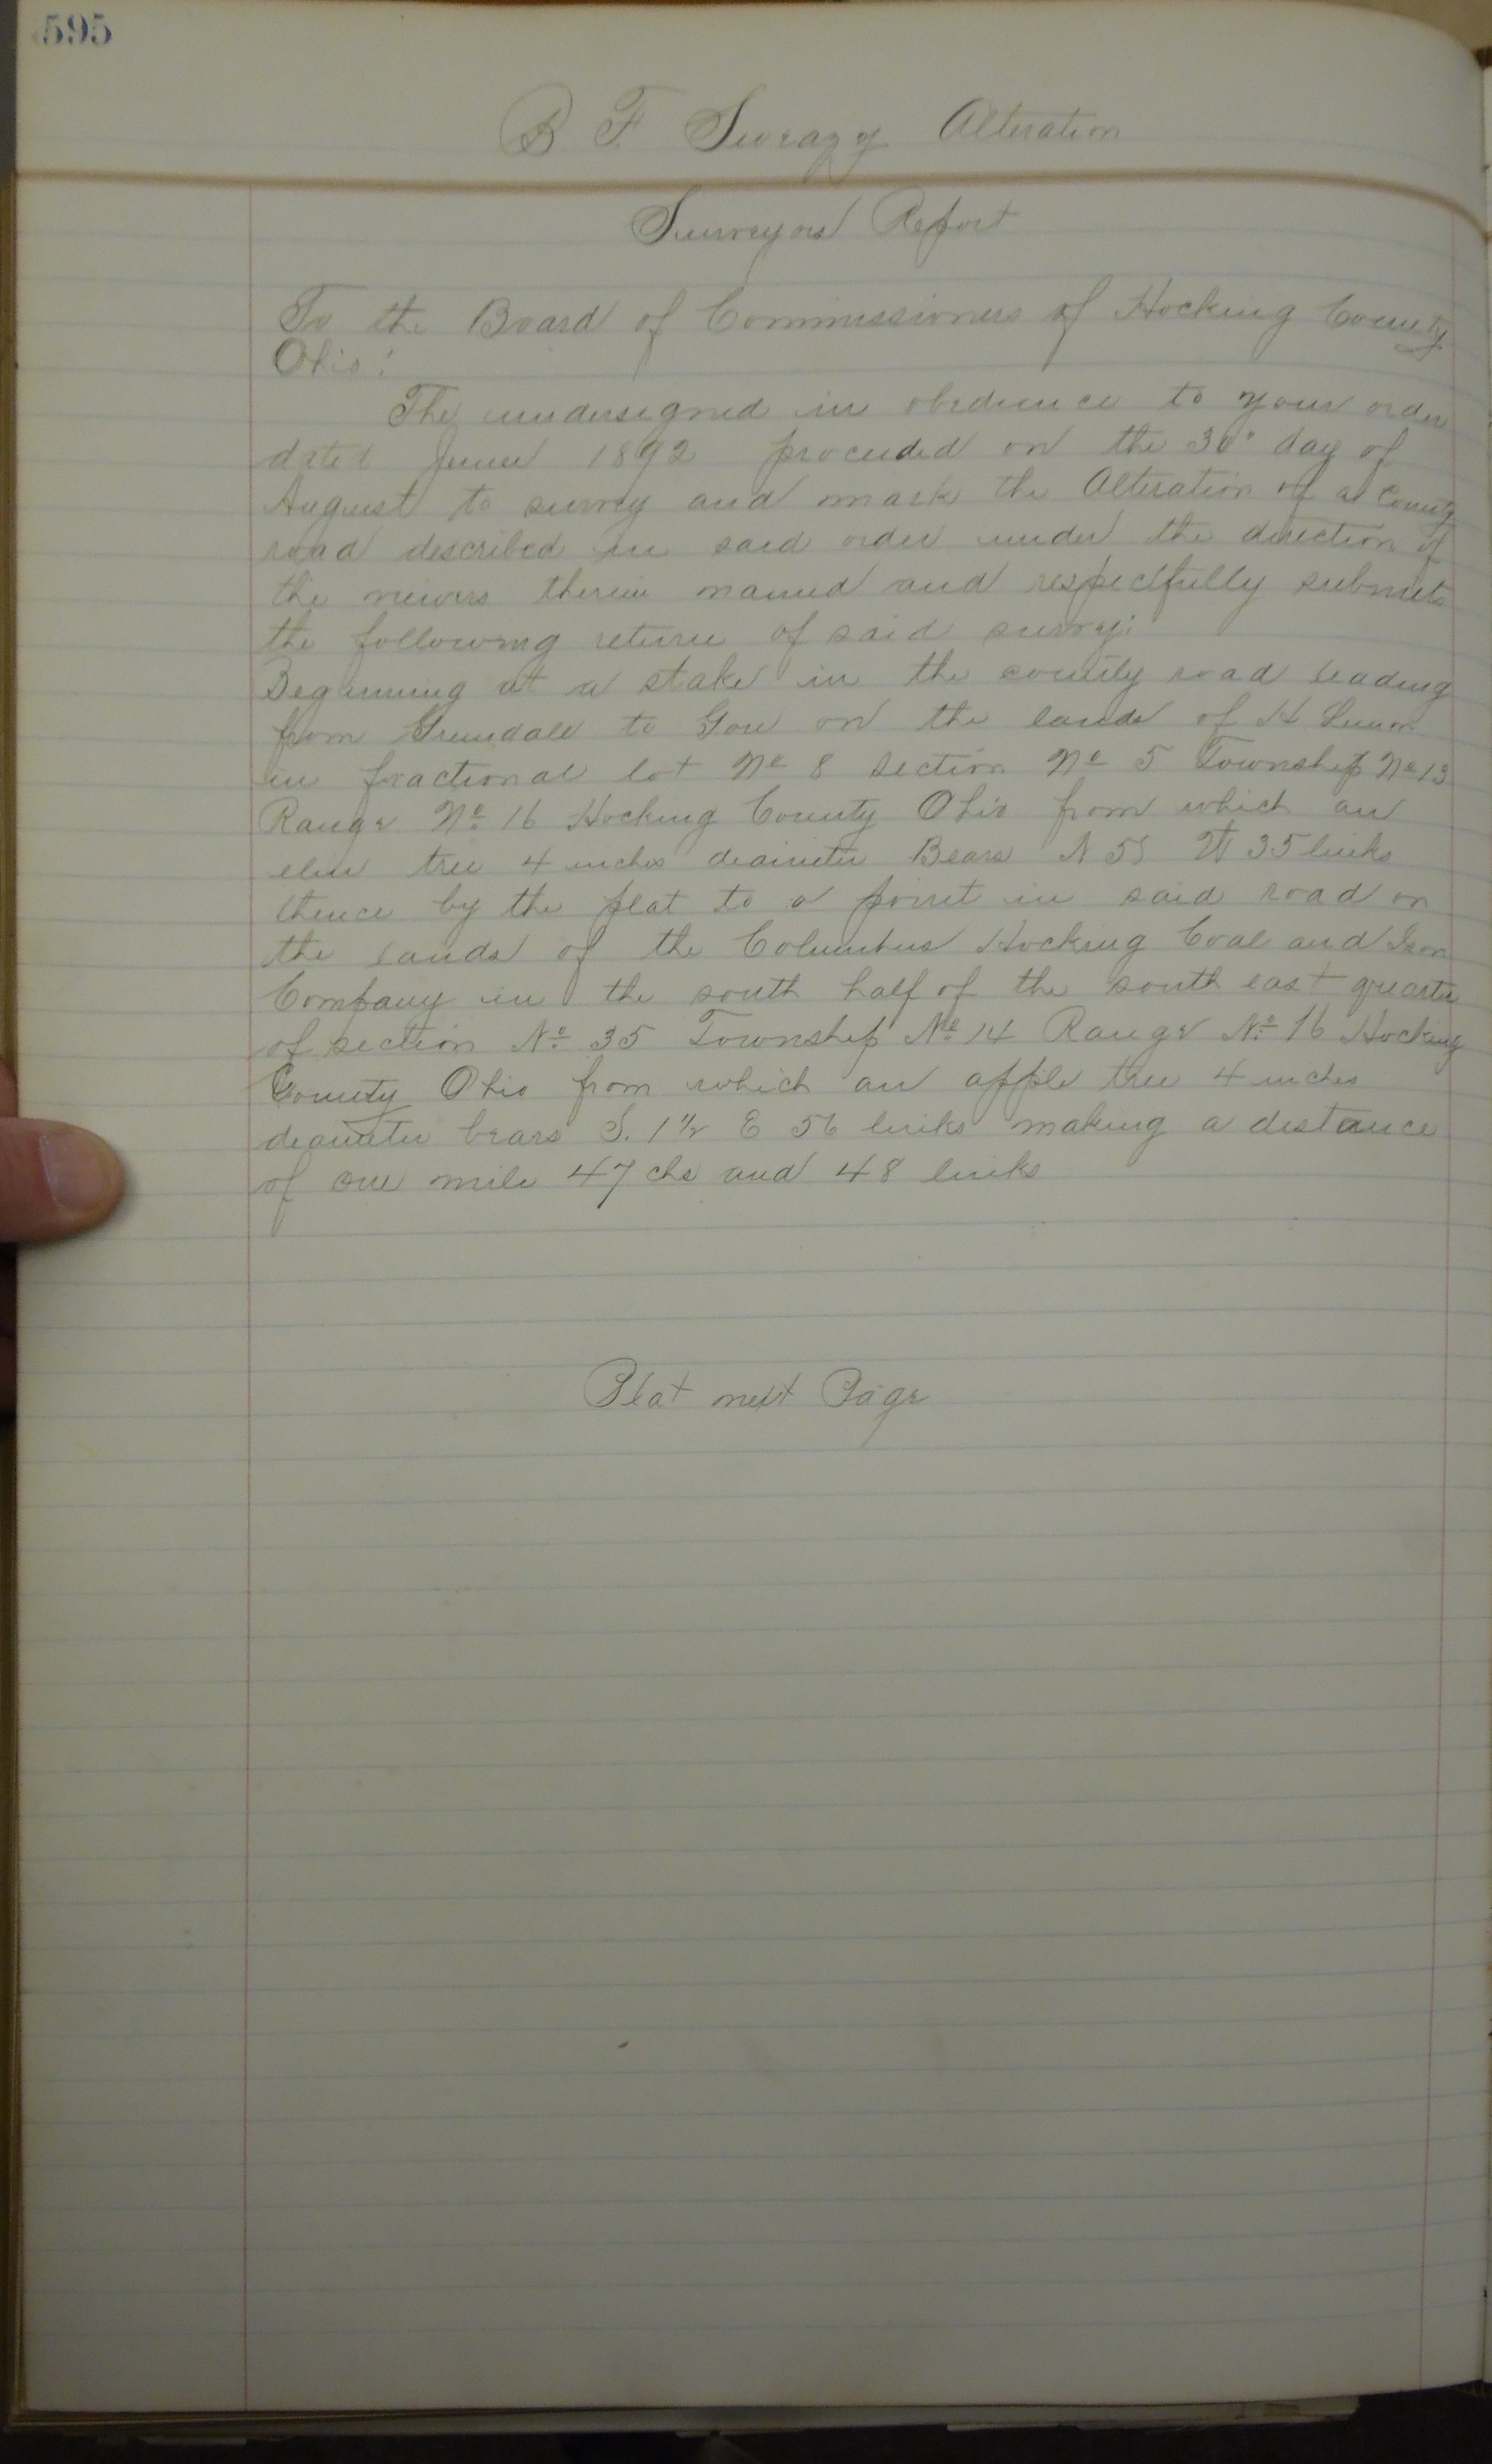 595
B F Sweazy Alteration
Surveyors Report
To the Board of Commissioners of Hocking County
Ohio:
The undersigned in obedience to your order
dated June 1892 proceeded on the 30" day of
August to survey and mark the Alteration of a County
road described in said order under the direction of
the viewers therein named and respectfully submits
the following return of said survey:
Beginning at a stake in the county road leading
from Greendale to Gore on the lands of H Lemon
in fractional lot No 8 Section No 5 Township No 13
Range No 16 Hocking County Ohio from which an
elm tree 4 inches deameter Bears N 55 W 35 links
thence by the plat to a point in said road on
the lands of the Columbus Hocking Coal and Iron
Company in the south half of the south east quarter
of section No 35 Township No 14 Range No 16 Hocking
County Ohio from which an apple tree 4 inches
deameter bears S. 1 1/2 E 56 links making a distance
of one mile 47 chs and 48 links
Plat next Page